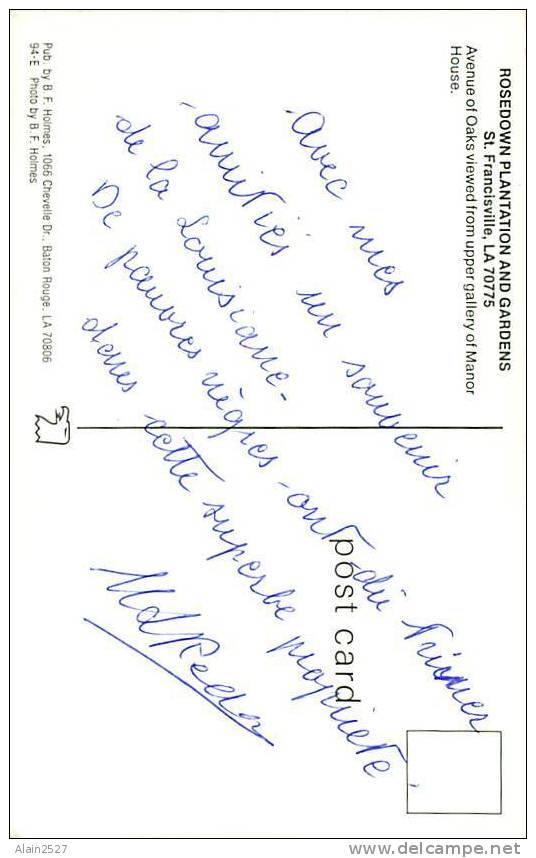 ROSEDOWN PLANTATION AND GARDENS
St. Francisville, LA 70775
Avenue of Oaks viewed from upper gallery of Manor
House.
Avec mes
amitiés un souvenir
de la Louisiane -
De pauvres nègres ont dû trimer
dans cette superbe propriété.
post card
Pub. by B. F. Holmes, 1066 Chevelle Dr., Baton Rouge, LA 70806
94-E Photo by B. F. Holmes
Alain2527
delcampe.net